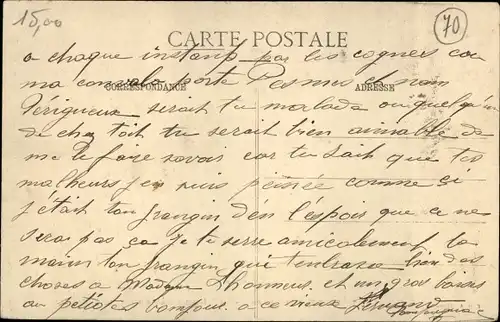 15,00
70
CARTE POSTALE
a chaque instant par les cognes
ma porte Pesmes et non
CORRESPONDANCE ADRESSE
Perigueux serait tu malade ou quelqu'un
de chez toit tu serait bien aimable de
me le faire savoir car tu sait que tes
malheurs j'en suis peinée comme si
j'était ton frangin dên l'éspoir que ce ne
sera pas ça Je te serre amicalement la
main ton frangin qui t'enbrasse bien des
choses a Madame Lhonneur et un gros baisers
au petiotes bonjour a ce vieux Fernand